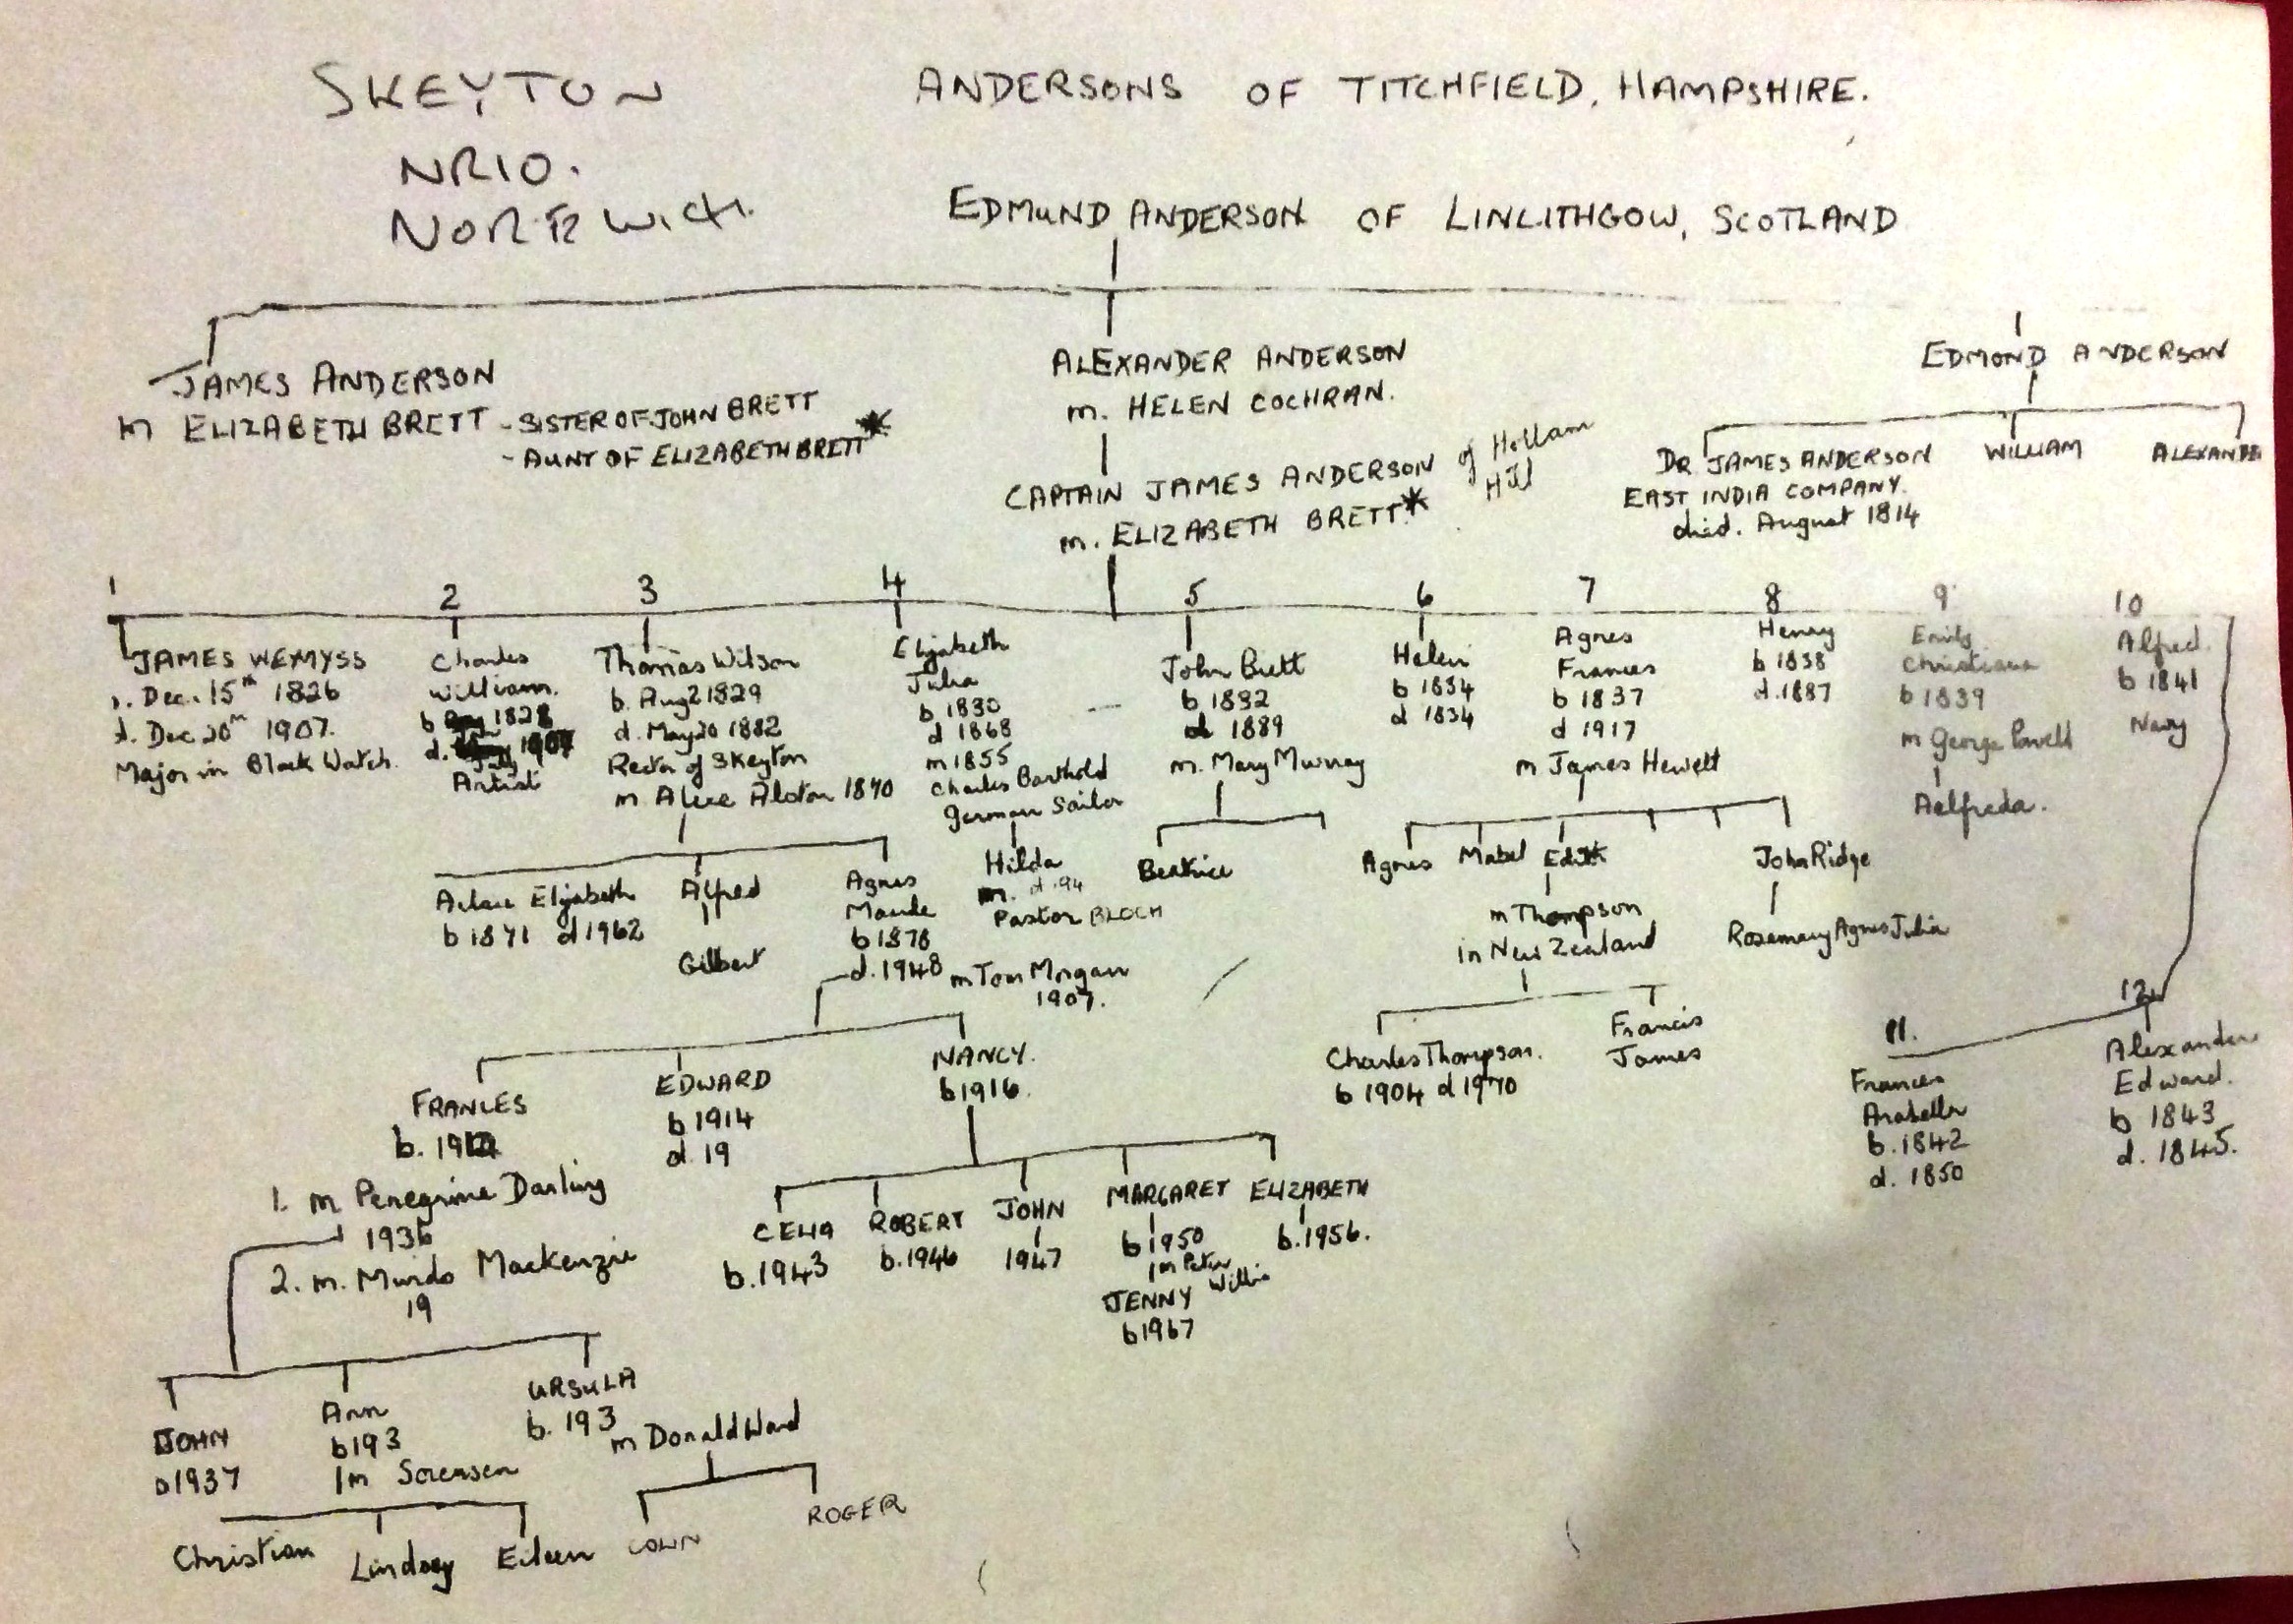 SKEYTON
NR10.
NORRWich.
ANDERSONS OF TITCHFIELD, HAMPSHIRE.
EDMUND ANDERSON OF LINLITHGOW, SCOTLAND
JAMES ANDERSON
m ELIZABETH BRETT - SISTER OF JOHN BRETT
- AUNT OF ELIZABETH BRETT*
ALEXANDER ANDERSON
m. HELEN COCHRAN.
CAPTAIN JAMES ANDERSON of Hollam
Hill
m. ELIZABETH BRETT*
EDMOND ANDERSON
DR JAMES ANDERSON
EAST INDIA COMPANY.
died. August 1814
WILLIAM
ALEXANDE
1
JAMES WEMYSS
b. Dec. 15th 1826
d. Dec 20th 1907.
Major in Black Watch.
2
Charles
William.
b 1828
d. July 1907
Artist
3
Thomas Wilson
b. Aug 2 1829
d. May 20 1882
Rector of Skeyton
m Alice Alston 1870
4
Elizabeth
Julia
b 1830
d 1868
m 1855
Charles Barthold
German Sailor
5
John Brett
b 1832
d 1889
m. Mary Murray
6
Helen
b 1834
d 1834
7
Agnes
Frances
b 1837
d 1917
m James Hewett
8
Henry
b 1838
d. 1887
9
Emily
Christiana
b 1839
m George Powell
Aelfreda.
10
Alfred.
b 1841
Navy
Elizabeth
b 1871 d 1962
Alfred
Gilbert
Agnes
Maude
b 1878
d. 1948 m Tom Morgan
1907.
Hilda
m. d. 94
Pastor BLOCH
Beatrice
Agnes Mabel Edith
m Thompson
in New Zealand
John Ridge
Rosemary Agnes Julia
Charles Thompson.
b 1904 d 1970
Francis
James
11.
Frances
Arabella
b. 1842
d. 1850
12
Alexander
Edward.
b 1843
d. 1845.
FRANCES
b. 1912
1. m Peregrine Darling
1936
2. m. Murdo Mackenzie
19
EDWARD
b 1914
d. 19
NANCY.
b 1916.
CELIA
b. 1943
ROBERT
b. 1946
JOHN
1947
MARGARET
b 1950
m Peter
Willis
JENNY
b 1967
ELIZABETH
b. 1956.
JOHN
b 1937
Ann
b 193
m Sorensen
URSULA
b. 193
m Donald Ward
Christian Lindsey Eileen
COLIN
ROGER